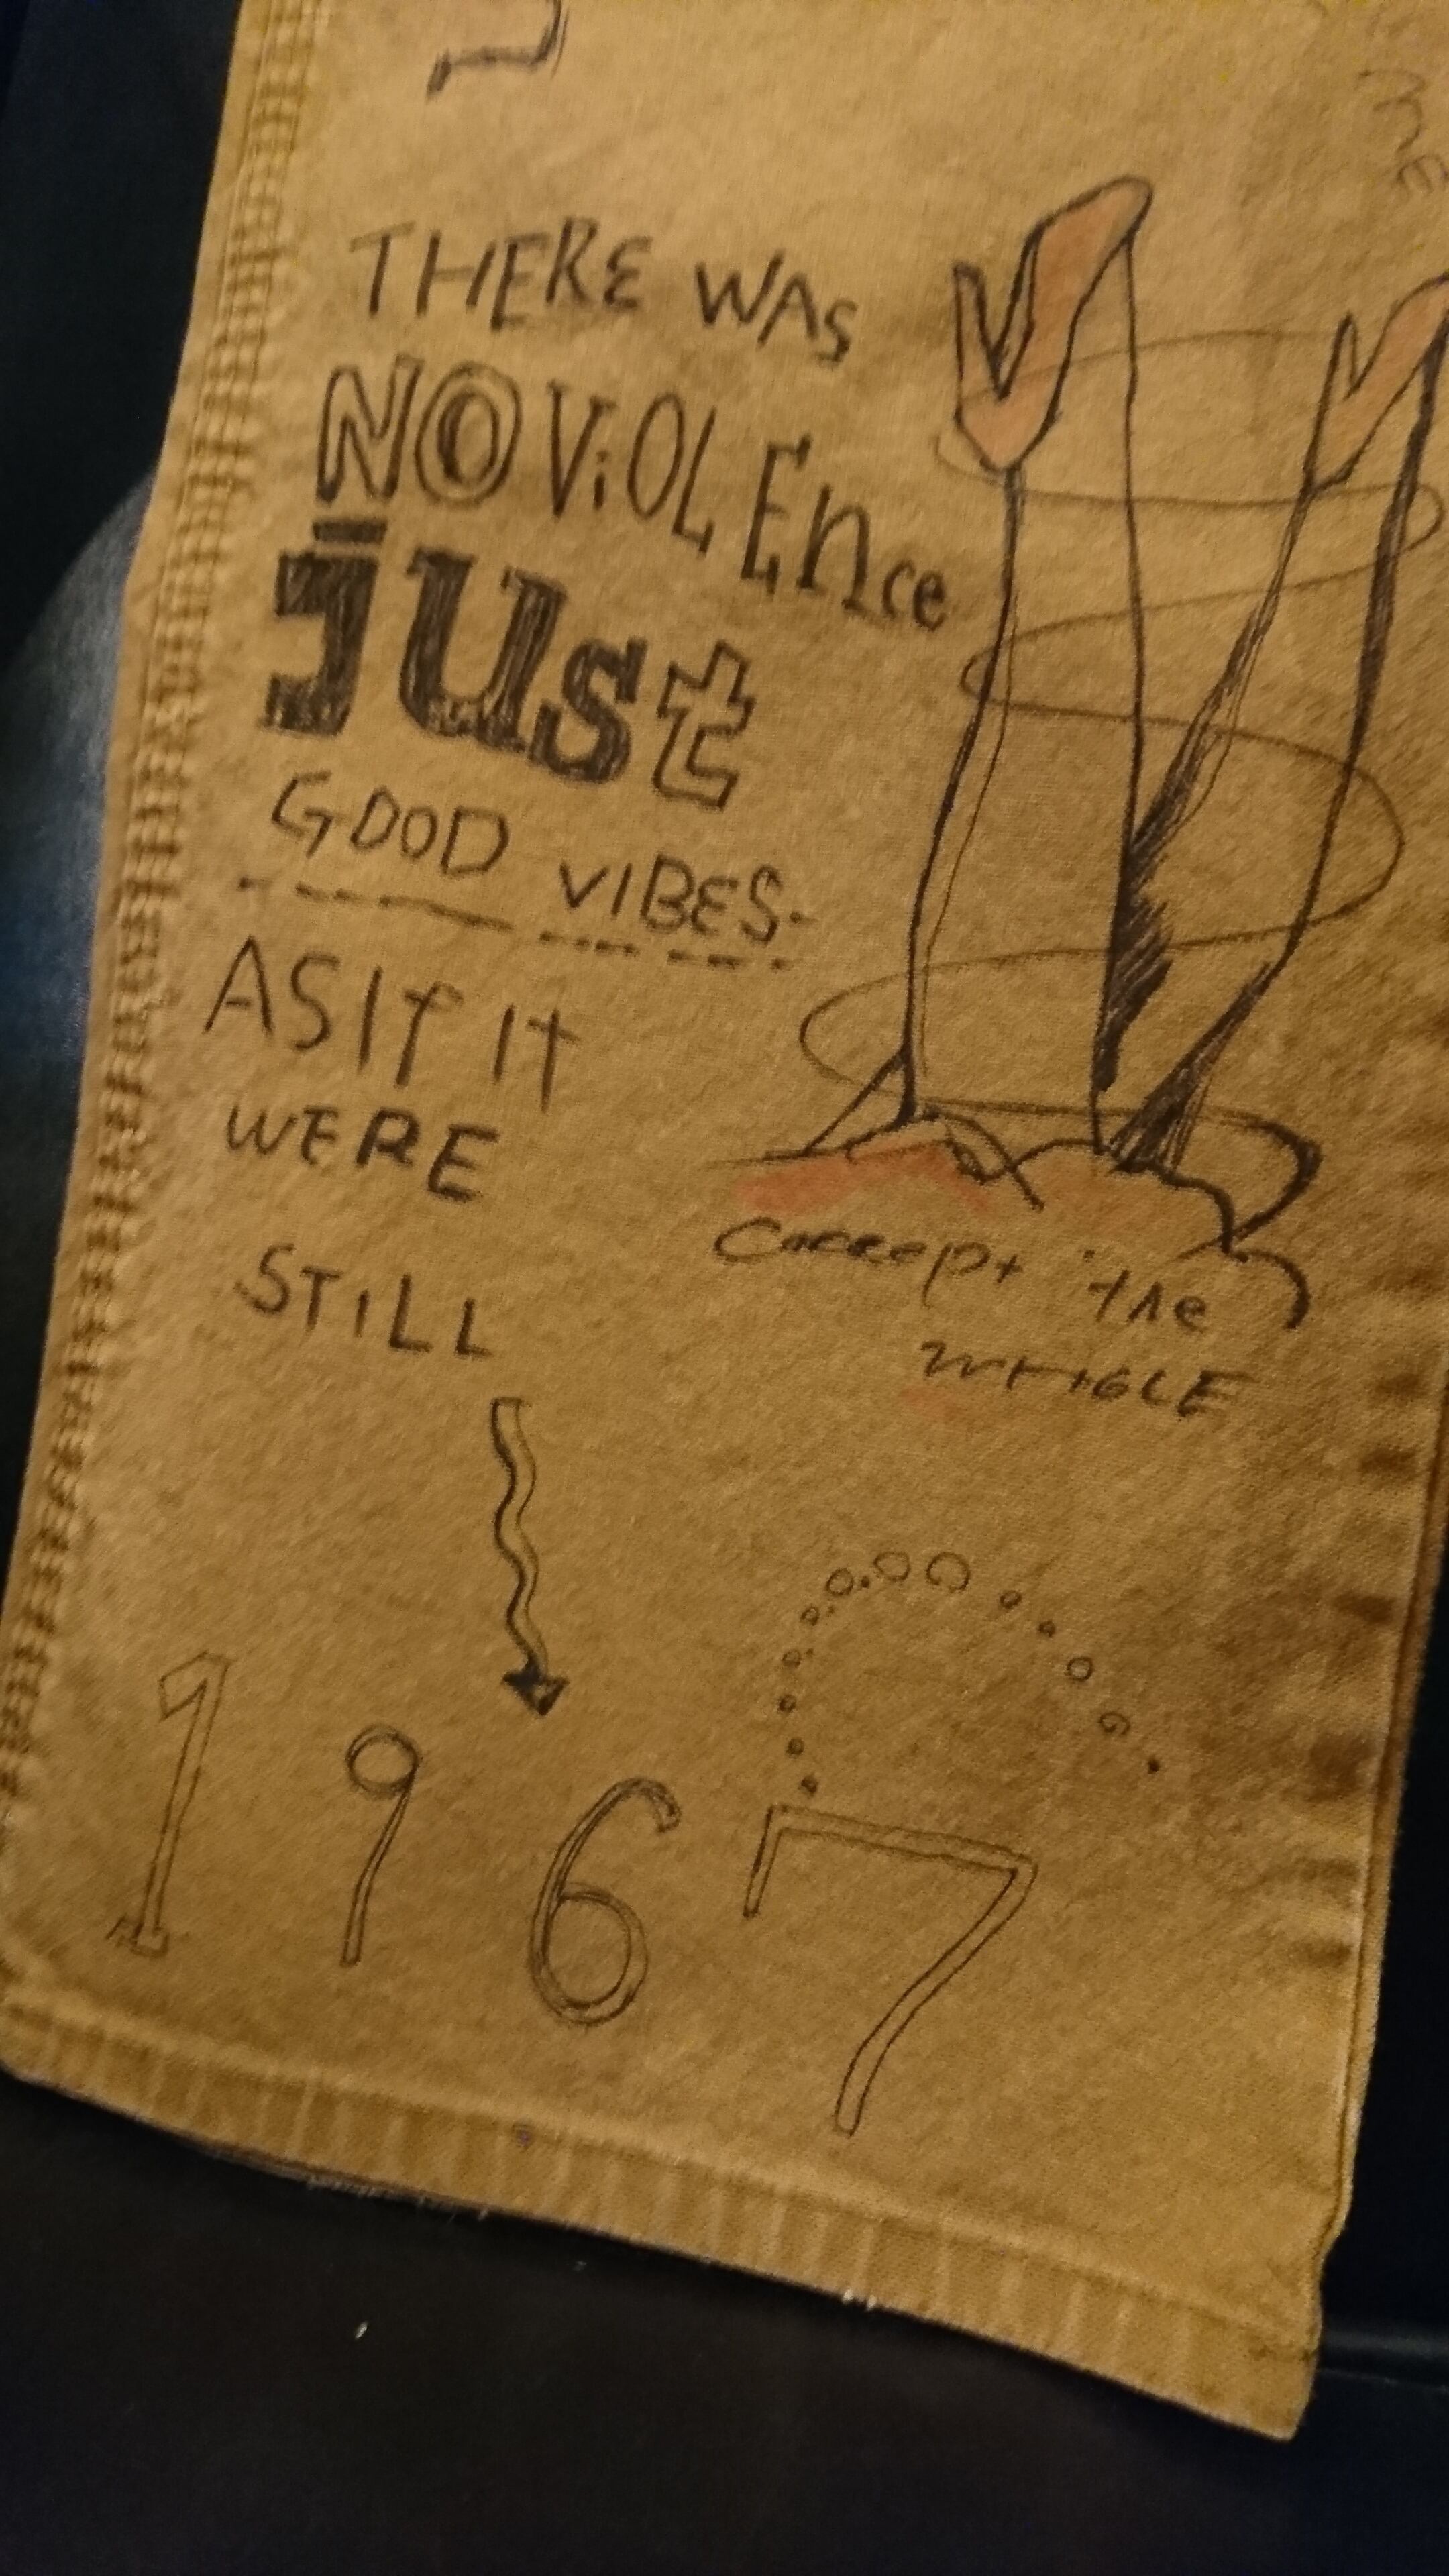 THERE WAS
NO ViOLEnce
just
GOOD VIBES-
AS If It
WERE
STiLL
the
1967